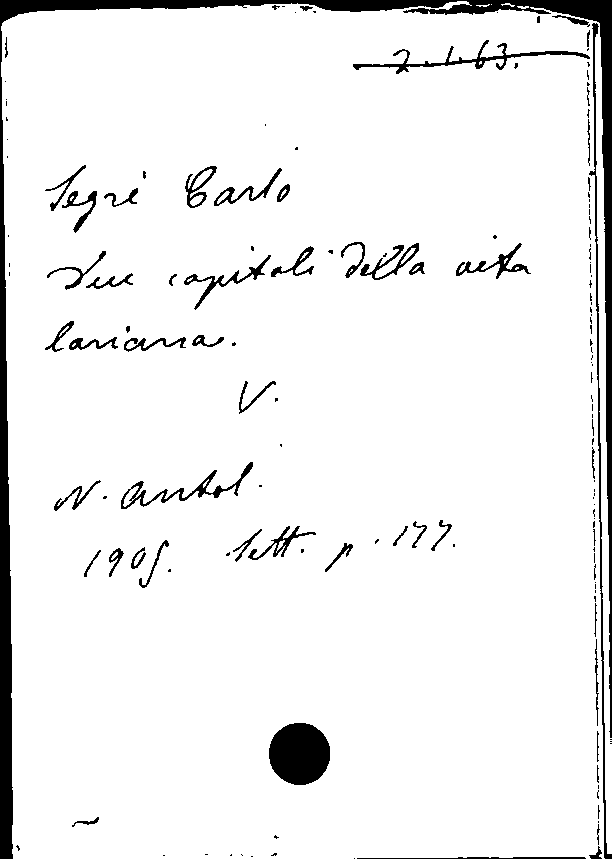 2.1.63.
Segrè Carlo
Due capitoli della vita
lariana.
V.
N. Antol.
1905. Sett. p. 177.